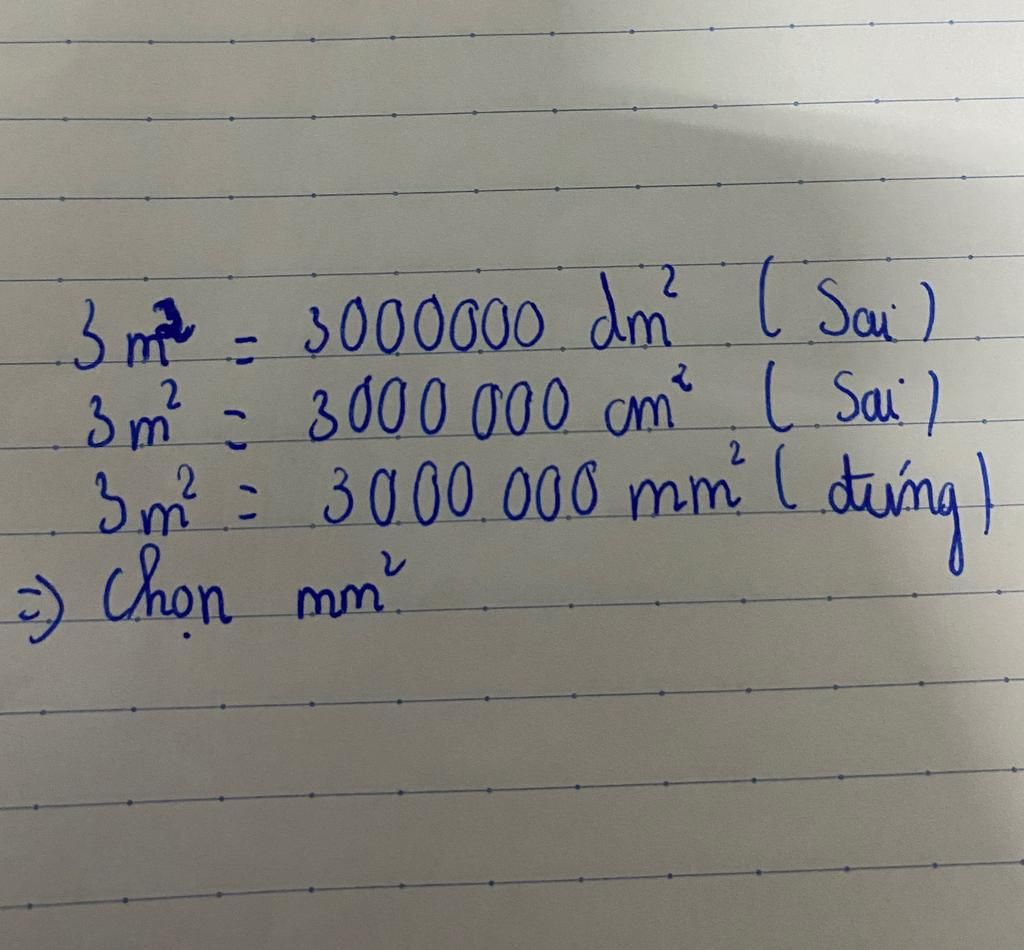 3m² = 3000000 dm² (Sai)
3m² = 3000 000 cm² (Sai)
3m² = 3000 000 mm² (đúng)
=) Chọn mm²